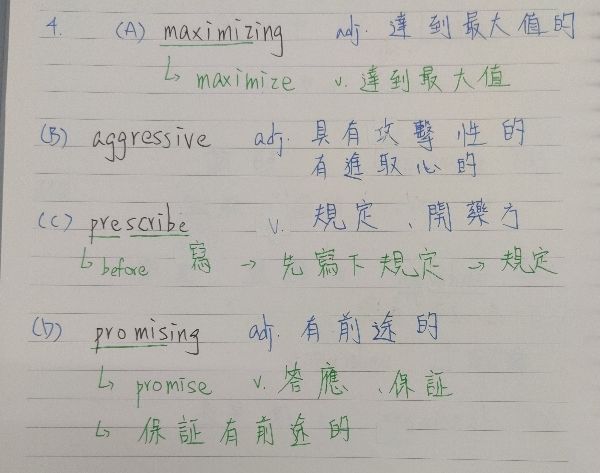 4. (A) maximizing adj. 達到最大值的
↳ maximize v. 達到最大值
(B) aggressive adj. 具有攻擊性的
有進取心的
(C) prescribe v. 規定、開藥方
↳ before 寫 → 先寫下規定 → 規定
(D) promising adj. 有前途的
↳ promise v. 答應、保証
↳ 保証有前途的